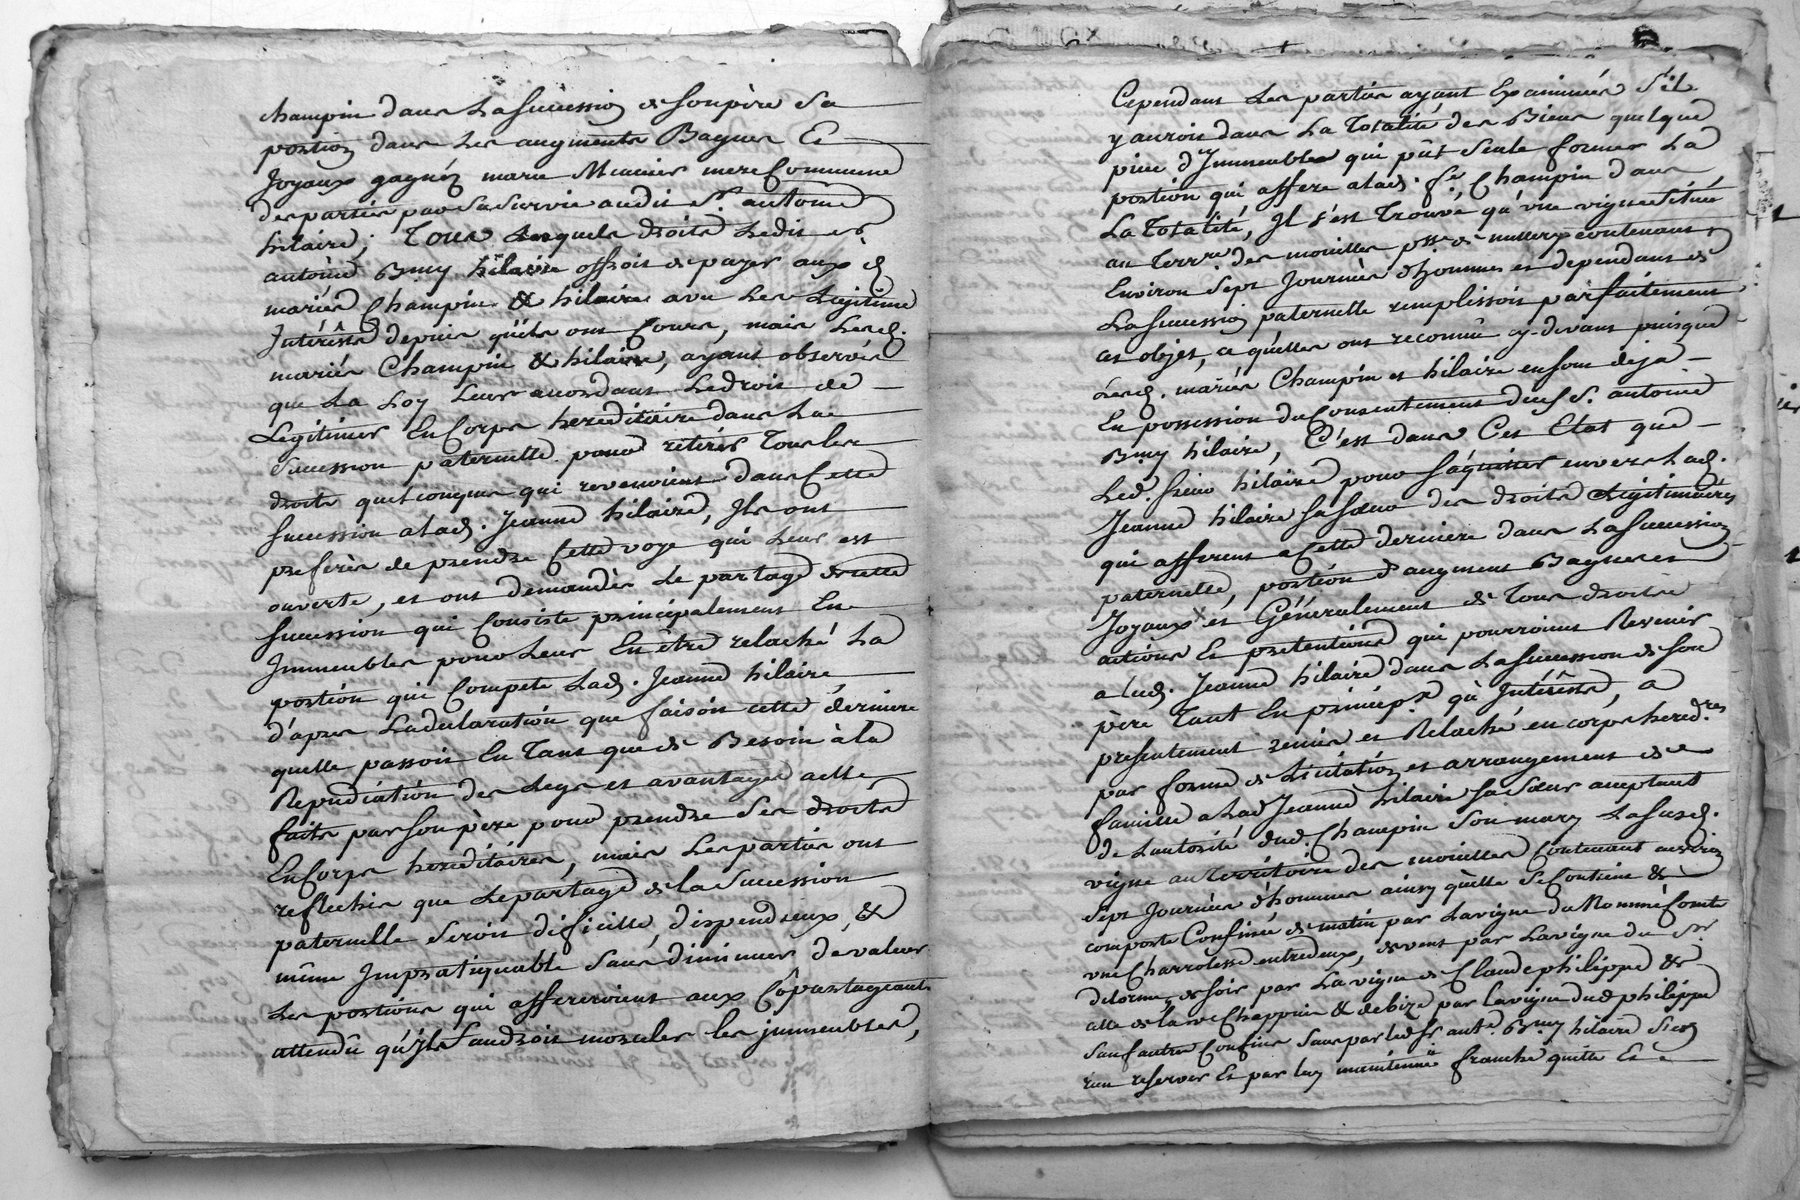 champin dans La Succession de son père Sa
portion dans Les augments Bagues Et
Joyaux gagnés marie Meunier mere Commune
des parties par Sa Survie audit Sr. antoine
hilaire; Tous Lesquels droits Ledit sr
antoine Bmy hilaire offroit de payer aux d
mariés Champin & hilaire avec Les Legitimes
Intérêsts depuis qu'ils ont Cours, mais Lesd.
mariés Champin & hilaire, ayant observés
que La Loy Leur accordant Le droit de
Legitimes En Corps hereditaire dans La
Succession paternelle pour retirer Tous les
droits quelconques qui revenoient dans Cette
Succession a lad. Jeanne hilaire, Ils ont
preferés de prendre Cette voye qui Leur est
ouverte, et ont demandés Le partage de cette
Succession qui Consiste principalement En
Immeubles pour Leur En être relaché La
portion qui Compete Lad. Jeanne hilaire,
d'après La declaration que faisoit cette dernière
quelle passoit En Tant que de Besoin à la
Repudiation des Legs et avantages a elle
faits par Son père pour prendre Ses droits
En Corps hereditaires, mais Les parties ont
reflechis que Le partage de la Succession
paternelle Seroit dificille, dispendieux, &
même Impratiquable Sans diminuer de valeur
Les portions qui affereroient aux Copartageants
attendû qu'Il faudroit morceler les immeubles,
Cependant Les parties ayant Examinées S'il
y auroit dans La Totalité des Biens quelque
piece d'Immeubles qui pût Seule former La
portion qui affere a lad. fe. Champin dans
La Totalité, Il s'est Trouvé qu'une vigne Située
au Terre. des mouilles psse de mussery contenant
Environ Sept Journées d'hommes et dependant de
La Succession paternelle remplissoit parfaitement
cet objet, ce qu'elles ont reconnû cy-devant puisque
Lesd. mariés Champin et hilaire en sont deja
En possession du Consentement dud. Sr. antoine
Bmy hilaire, C'est dans Cet Etat que
Led. Sieur hilaire pour S'aquitter envers Lad.
Jeanne hilaire Sa Sœur des droits Legitimaires
qui afferent a Cette derniere dans La Succession
paternelle, portion d'augment Bagues et
Joyaux x et Généralement de Tous droits
actions Et pretentions qui pourroient Revenir
a lad. Jeanne hilaire dans La Succession de Son
père Tant En princip.al qu'Intérêsts, a
presentement remis et Relaché en corps hered.res
par forme de Licitation et arrangement de
famille a Lad Jeanne hilaire Sa Sœur acceptant
de L'autorité dud. Champin Son mary La Susd.
vigne au Territoire des mouilles Contenant environ
Sept Journées d'hommes ainsy qu'elle Se Contient &
comporte Confinée de matin par La vigne du Nommé Comte
une Charrotesse entredeux, de vent par La vigne du Sr.
delorme, de Soir par La vigne de Claude philippe &
celle de la ve Chappuis & de bize par la vigne dud philippe
Sauf autres Confins Sans par led Sr ant.e Bmy hilaire S'en
rien reserver Et par luy maintenüe franche quitte Et